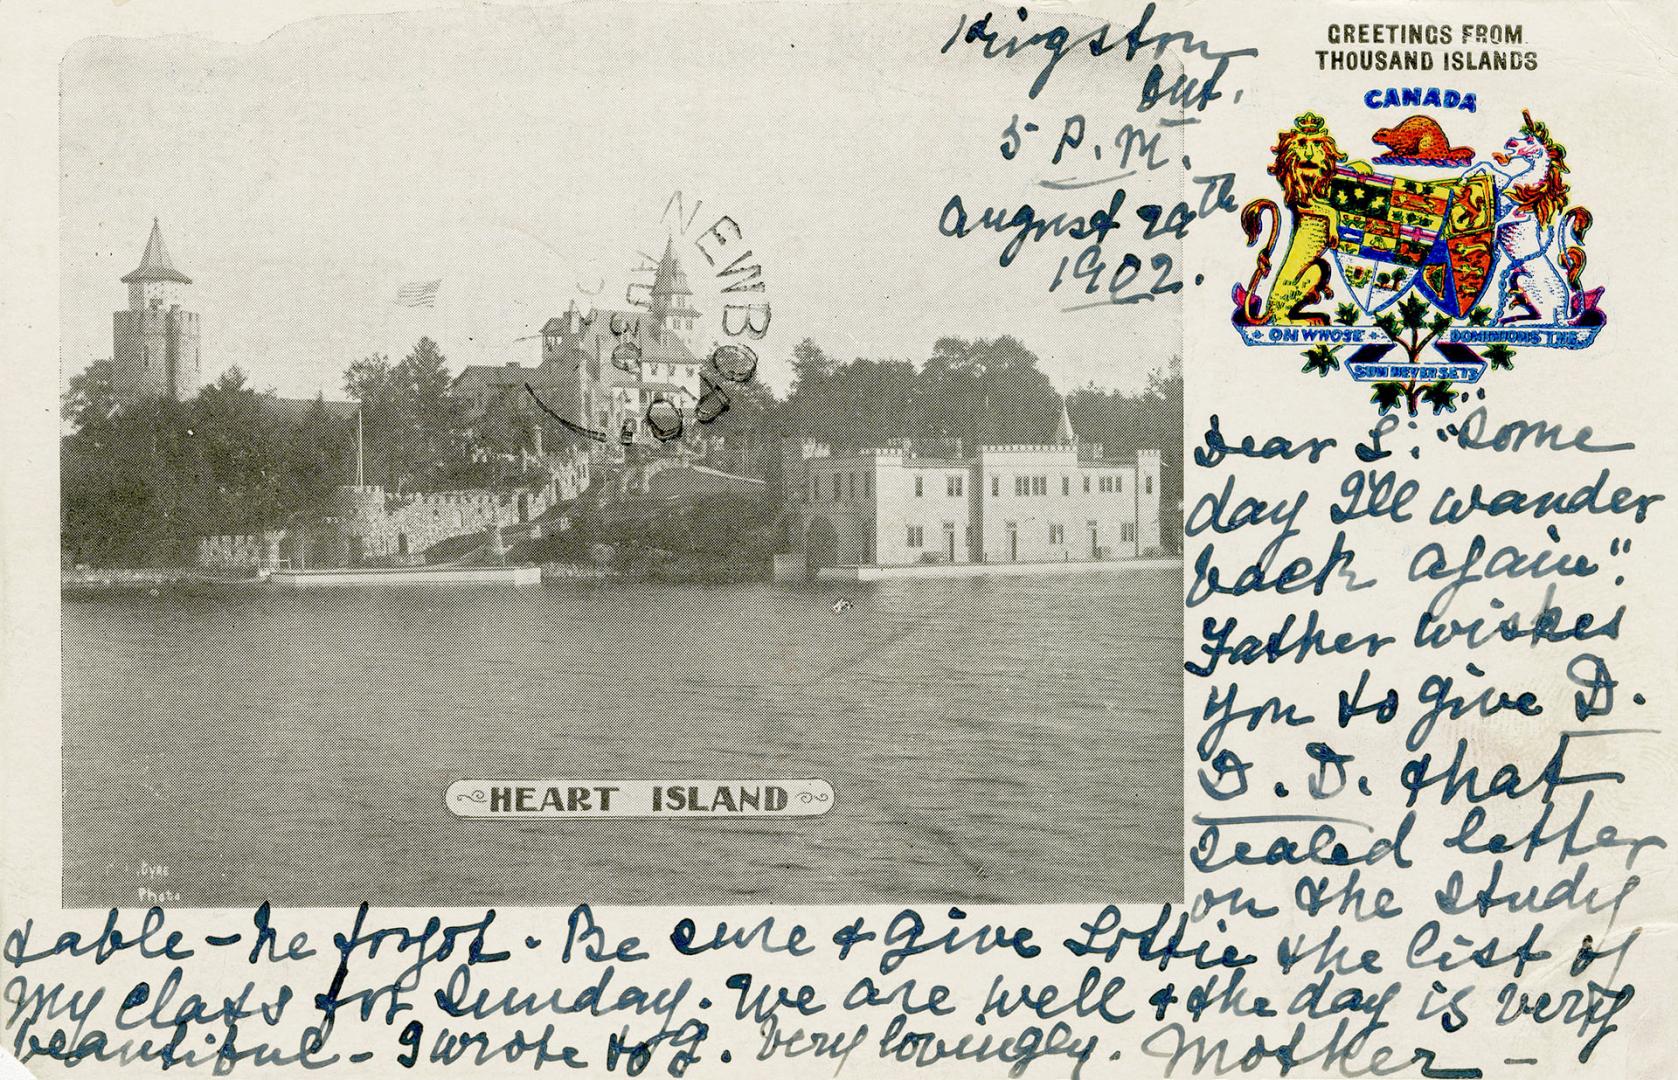 Kingston
Ont.
5 P.M.
August 29th
1902.
GREETINGS FROM
THOUSAND ISLANDS
CANADA
ON WHOSE DOMINIONS THE
SUN NEVER SETS
NEWBORO
AU 30
HEART ISLAND
Photo
Dear L: "Some
day I'll wander
back again".
Father wishes
you to give D.
D.D. that
sealed letter
on the study
table - he forgot. Be sure & give Lottie the list of
my class for Sunday. We are well & the day is very
beautiful - I wrote to G. Very lovingly. Mother -